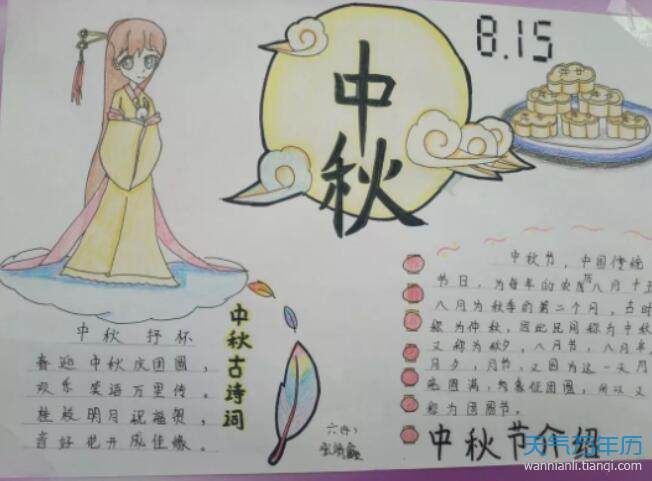 中秋
8.15
中秋 抒怀
喜迎中秋庆团圆，
欢乐笑语万里传。
桂殿明月祝福贺，
喜好花开成佳缘。
中秋古诗词
六（4）
中秋节，中国传统
节日，为每年的农历八月十五
八月为秋季的第二个月，古时
称为仲秋，因此民间称为中秋
又称为秋夕，八月节，八月半，
月夕，月节，又因为这一天月
亮圆满，象征团圆，所以又
称为团圆节。
中秋节介绍
天气万年历
wannianli.tianqi.com